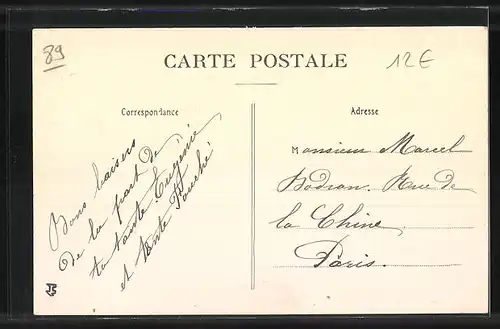 89
CARTE POSTALE
12€
Correspondance
Bons baisers
de la part de
ta tante Eugénie
et
Adresse
Monsieur Marcel
Bodron. Rue de
la Chine
Paris.